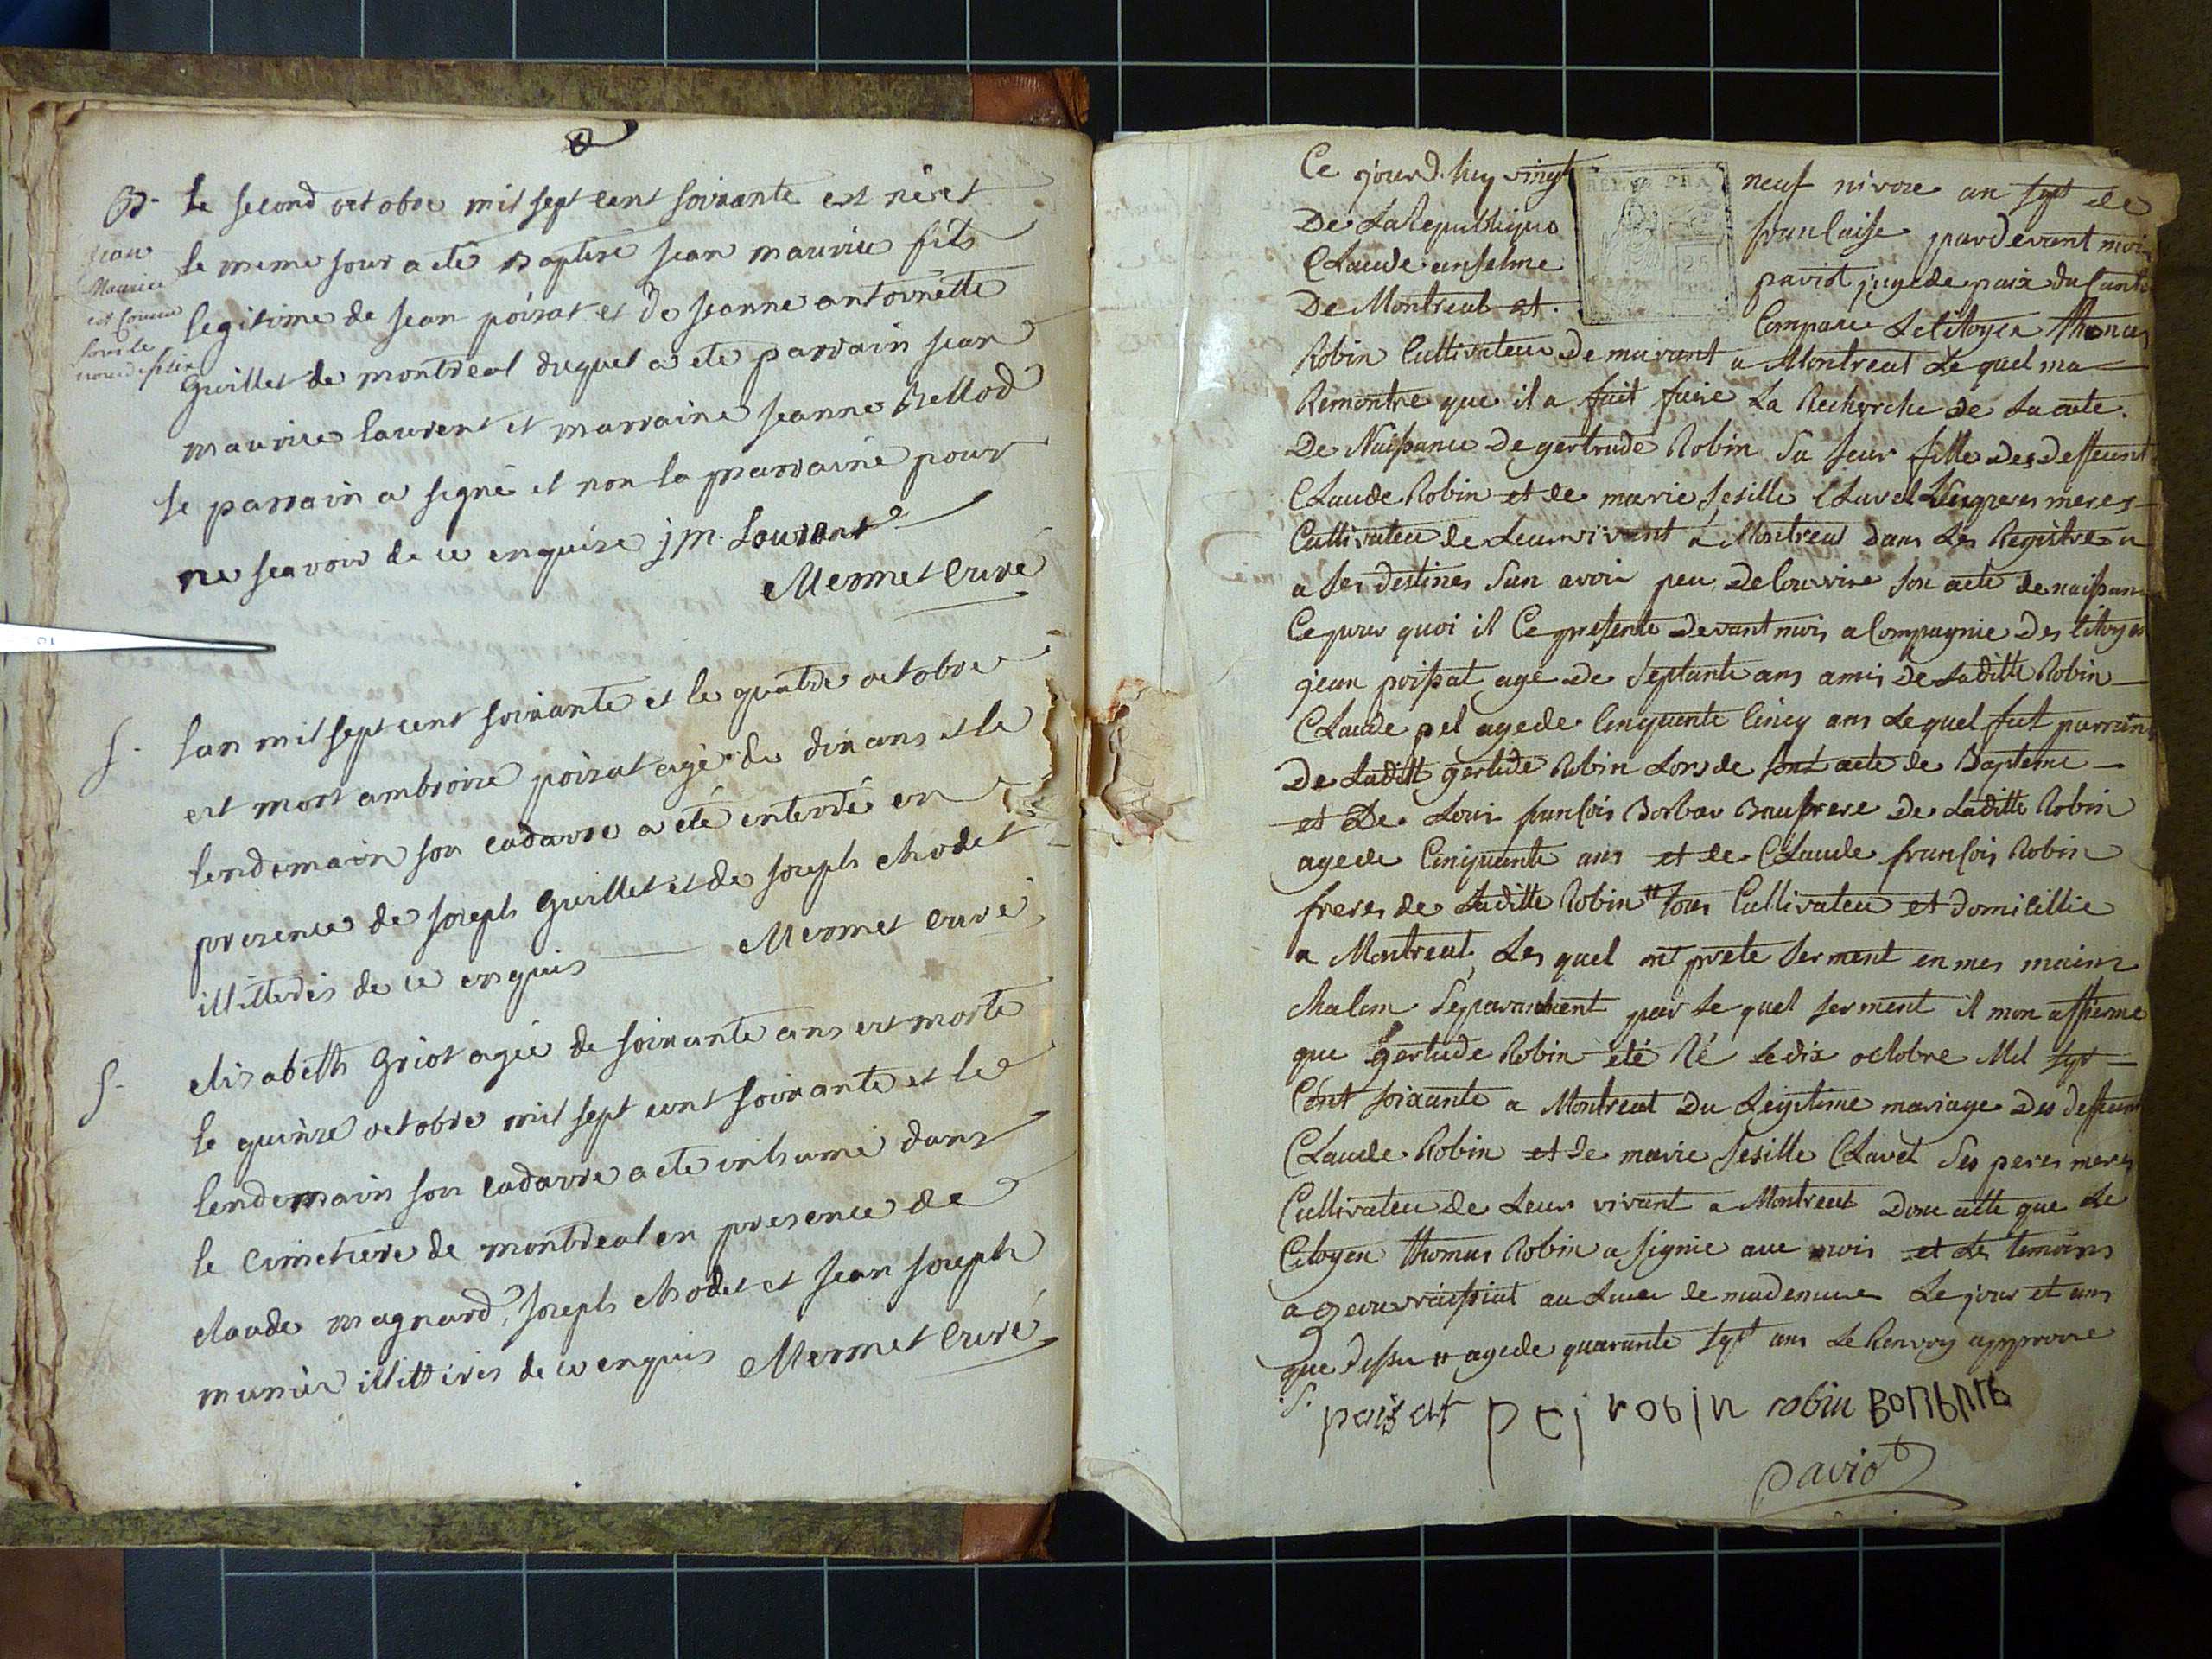 B. Le second octobre mil sept cent soixante est né et
le meme jour a eté Baptisé jean maurice fils
legitime de jean poizat et de jeanne antoinette
guillet de montreal duquel a eté parrain jean
maurice laurent et marraine jeanne Bellod
le parrain a signé et non la marraine pour
ne scavoir de ce enquise j m. Laurent
Mermet Curé
jean
Maurice
est Connu
sous le
S. lan mil sept cent soixante et le quatre octobre
est mort ambroise poizat agé de dix ans et le
lendemain son cadavre a eté enterré en
presence de joseph guillet et de joseph chodet
illitterés de ce enquis Mermet Curé
S. elisabeth griot agée de soixante ans est morte
le quinze octobre mil sept cent soixante et le
lendemain son cadavre a eté inhumé dans
le Cimetiere de montreal en presence de
claude magnard, joseph chodet et jean joseph
munier illitterés de ce enquis Mermet Curé
Ce jourd.huy vingt neuf nivose an sept de
De La Republique francaise pardevant moi
Claude anselme paviot juge de paix du Cant
De Montreal est Compare Le Citoyen thomas
Robin Cultivateur Demeurant a Montreal Le quel ma
Remontre que il a fait faire La Recherche de La acte
De Naissance De gertrude Robin Sa seur fille des deffeunt
Claude Robin et de marie sesille Clavel Ses peres meres
Cultivateu de Leur vivant a Montreal Dans Les Registre a
a Ses destines San avoir peu Decouvrire Son acte de naissan
Ce pour quoi il Ce presente Devant moi a Compagnie Des Citoyen
jean poissat age De Septante ans amis De Laditte Robin
Claude pel age de Cinquante Cincq ans Le quel fut parrain
De Laditt gertude Robin Lors de Son acte de Bapteme
et De Loui francois Borbar Baufrere De Laditte Robin
age de Cinquante ans et de Claude francois Robin
freres de Laditte Robin # tous Cultivateu et domicillie
a Montreal, Les quel ont prete Serment en mes mains
chalem Separament par Le quel Serment il mon affirme
que gertude Robin eté Né Le dix octobre Mil Sept
Cent Soixante a Montreal Du Legitime mariage Des deffeun
Claude Robin et de marie sesille Clavel Ses peres meres
Cultivateu de Leur vivant a Montreal Donc atte que Le
Citoyen thomas Robin a Signie avec moi et Les temoins
Le jour et ans
que dessu # age de quarante Sept ans Le Renvoy approvve
poisat pel robin robin Borbar
Paviot